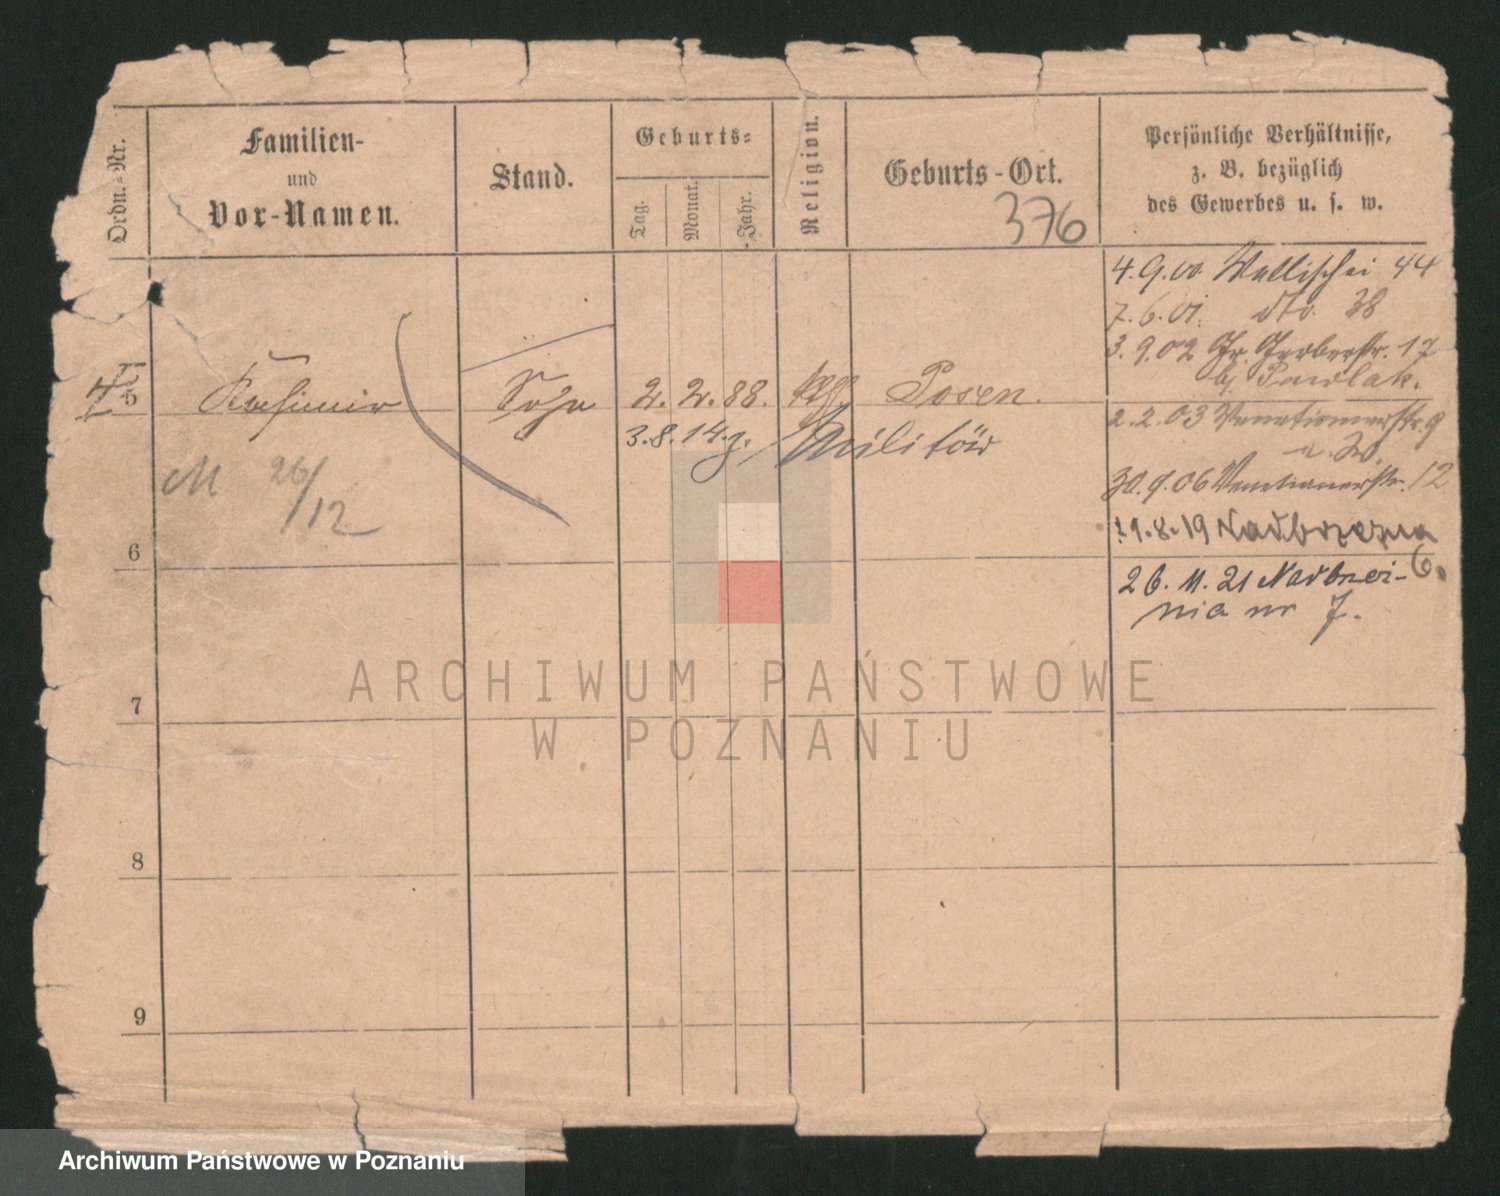 Ordn.-Nr.
Familien-
und
Vor-Namen.
Stand.
Geburts-
Tag.
Monat.
Jahr.
Religion.
Geburts-Ort.
376
Persönliche Verhältnisse,
z. B. bezüglich
des Gewerbes u. s. w.
4.9.00 Wallischei 44
7.6.01. dto. 38
3.9.02 Gr. Gerberstr. 17
b/ Pawlak.
5 Kasimir Sohn 2. 2. 88. kth. Posen.
2.2.03 Venetianerstr. 9
3.8.14 z. Militär
30.9.06 Venetianerstr. 12
M 26/12
19.8.19 Nadbrzeżna
6.
6
26.11.21 Nadbrzeż-
nia nr 7.
7
8
9
ARCHIWUM PAŃSTWOWE
W POZNANIU
Archiwum Państwowe w Poznaniu